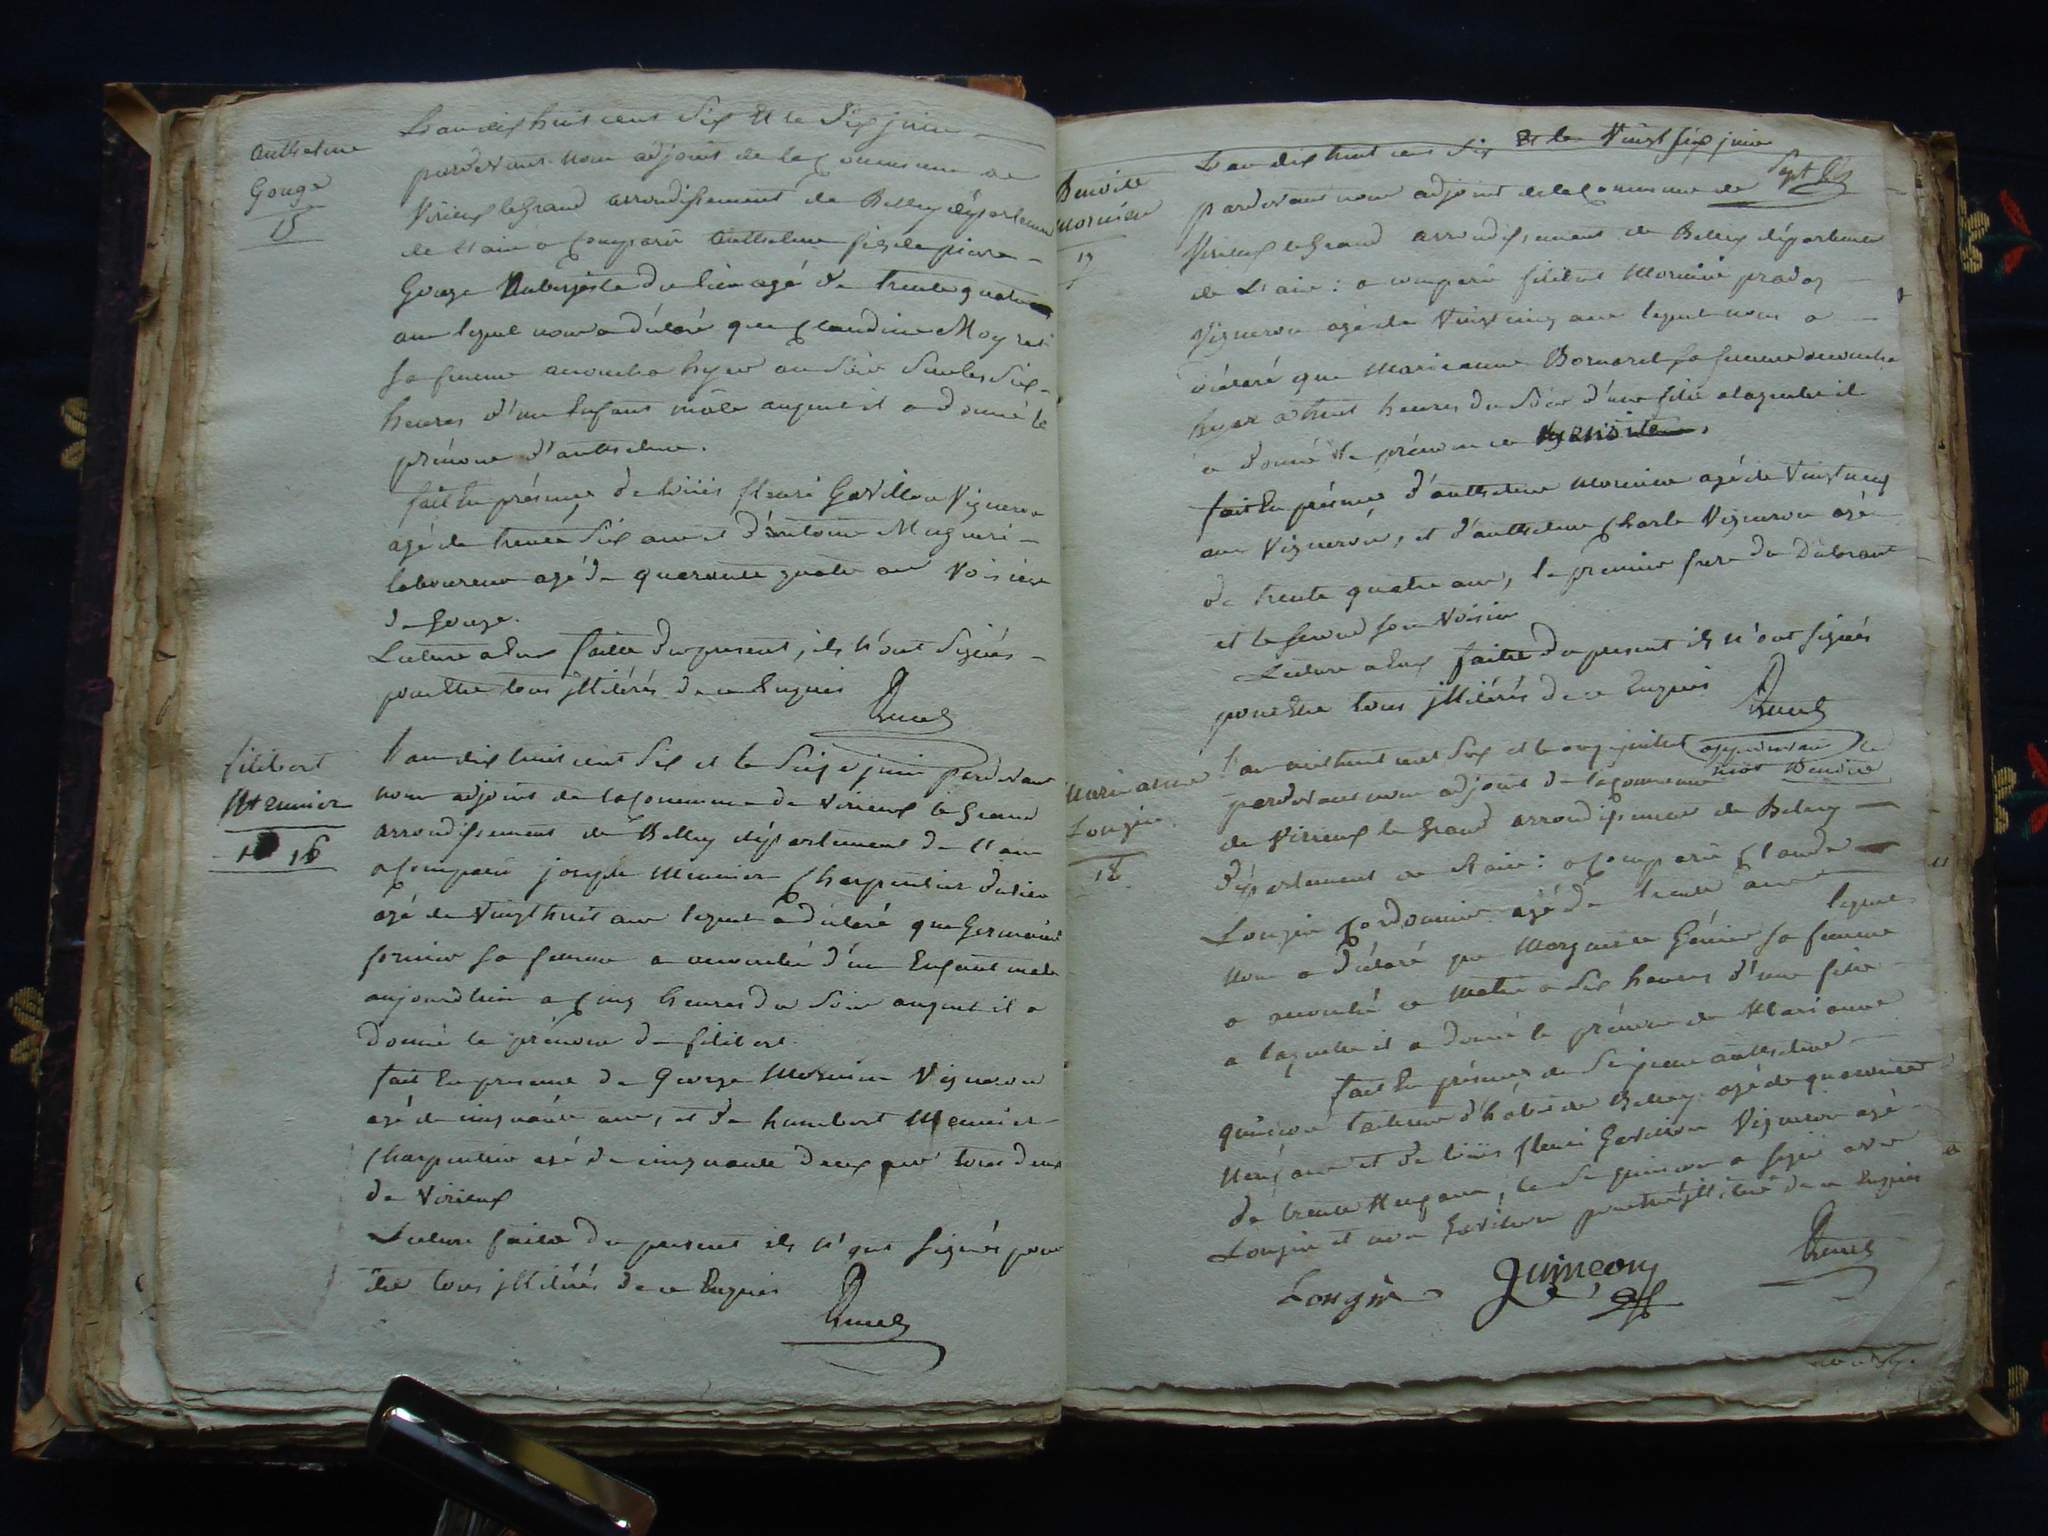 Anthelme
Gouge
15
L'an dix huit cent Six & le Six juin
pardevant nous adjoint de la Commune de
Virieux le Grand arrondissement de Belley département
de l'ain a Comparu anthelme fils de pierre
Gouge Aubergiste du lieu agé de trente quatre
ans lequel nous a déclaré que Claudine
sa femme accoucha hyer au Soir Sur les Six
heures d'un Enfant mâle auquel il a donné le
prénom d'anthelme.
fait En présence de Loüis fleuri Gavillon Vigneron
agé de trente Six ans et d'antoine
laboureur agé de quarante quatre ans Voisins
de Gouge.
Lecture a Eux faitte du present, ils n'ont Signés
pour Etre tous illitérés de ce Enquis
filibert
Meunier
16
l'an dix huit cent Six et le Seize juin pardevant
nous adjoint de la Commune de Virieux le Grand
arrondissement de Belley département de l'ain
a Comparu joseph Meunier Charpentier du lieu
agé de Vingt huit ans lequel a déclaré que Germaine
sa femme a accouché d'un Enfant male
aujourdhui a Cinq heures du Soir auquel il a
donné le prénom de filibert.
fait En presence de George Mornieu Vigneron
agé de cinquante ans, et de humbert Meunier
Charpentier agé de cinquante deux ans tous deux
de Virieux
Lecture faite du present ils n'ont Signés pour
être tous illitérés de ce Enquis
Benoite
Mornieu
17
L'an dix huit cent Six & le Vingt Six juin
pardevant nous adjoint de la Commune de
Virieux le Grand arrondissement de Belley département
de L'ain : a comparu filibert Mornieu
Vigneron agé de Vingt cinq ans lequel nous a
déclaré que Marieanne Bornard sa femme accoucha
hyer a huit heures du Soir d'une fille a laquelle il
a donné le prénom de
fait En présence d'anthelme Mornieu agé de Vingt neuf
ans Vigneron, et d'anthelme Charle Vigneron agé
de trente quatre ans, le premier frere du Déclarant
et le Second son Voisin
Lecture a Eux faitte du present ils n'ont signés
pour Etre tous illitérés de ce Enquis
Marieanne
Longin
18
l'an dix huit cent Six et le onze juillet
pardevant nous adjoint de la Commune
de Virieux le Grand arrondissement de Belley
département de l'ain : a Comparu Claude
Longin Cordonnier agé de trente ans lequel
nous a déclaré que Marguerite sa femme
a accouché ce Matin a Six heures d'une fille
a laquelle il a donné le prénom de Marianne
fait En présence de Sr pierre anthelme
Quinçon tailleur d'habit de Belley agé de quarante
neuf ans et de Loüis fleuri Gavillon Vigneron agé
de trente Neuf ans, le Sr Quinçon a signé avec
Longin et non Gavillon pour Etre illitéré de ce Enquis
Longin Quinçon